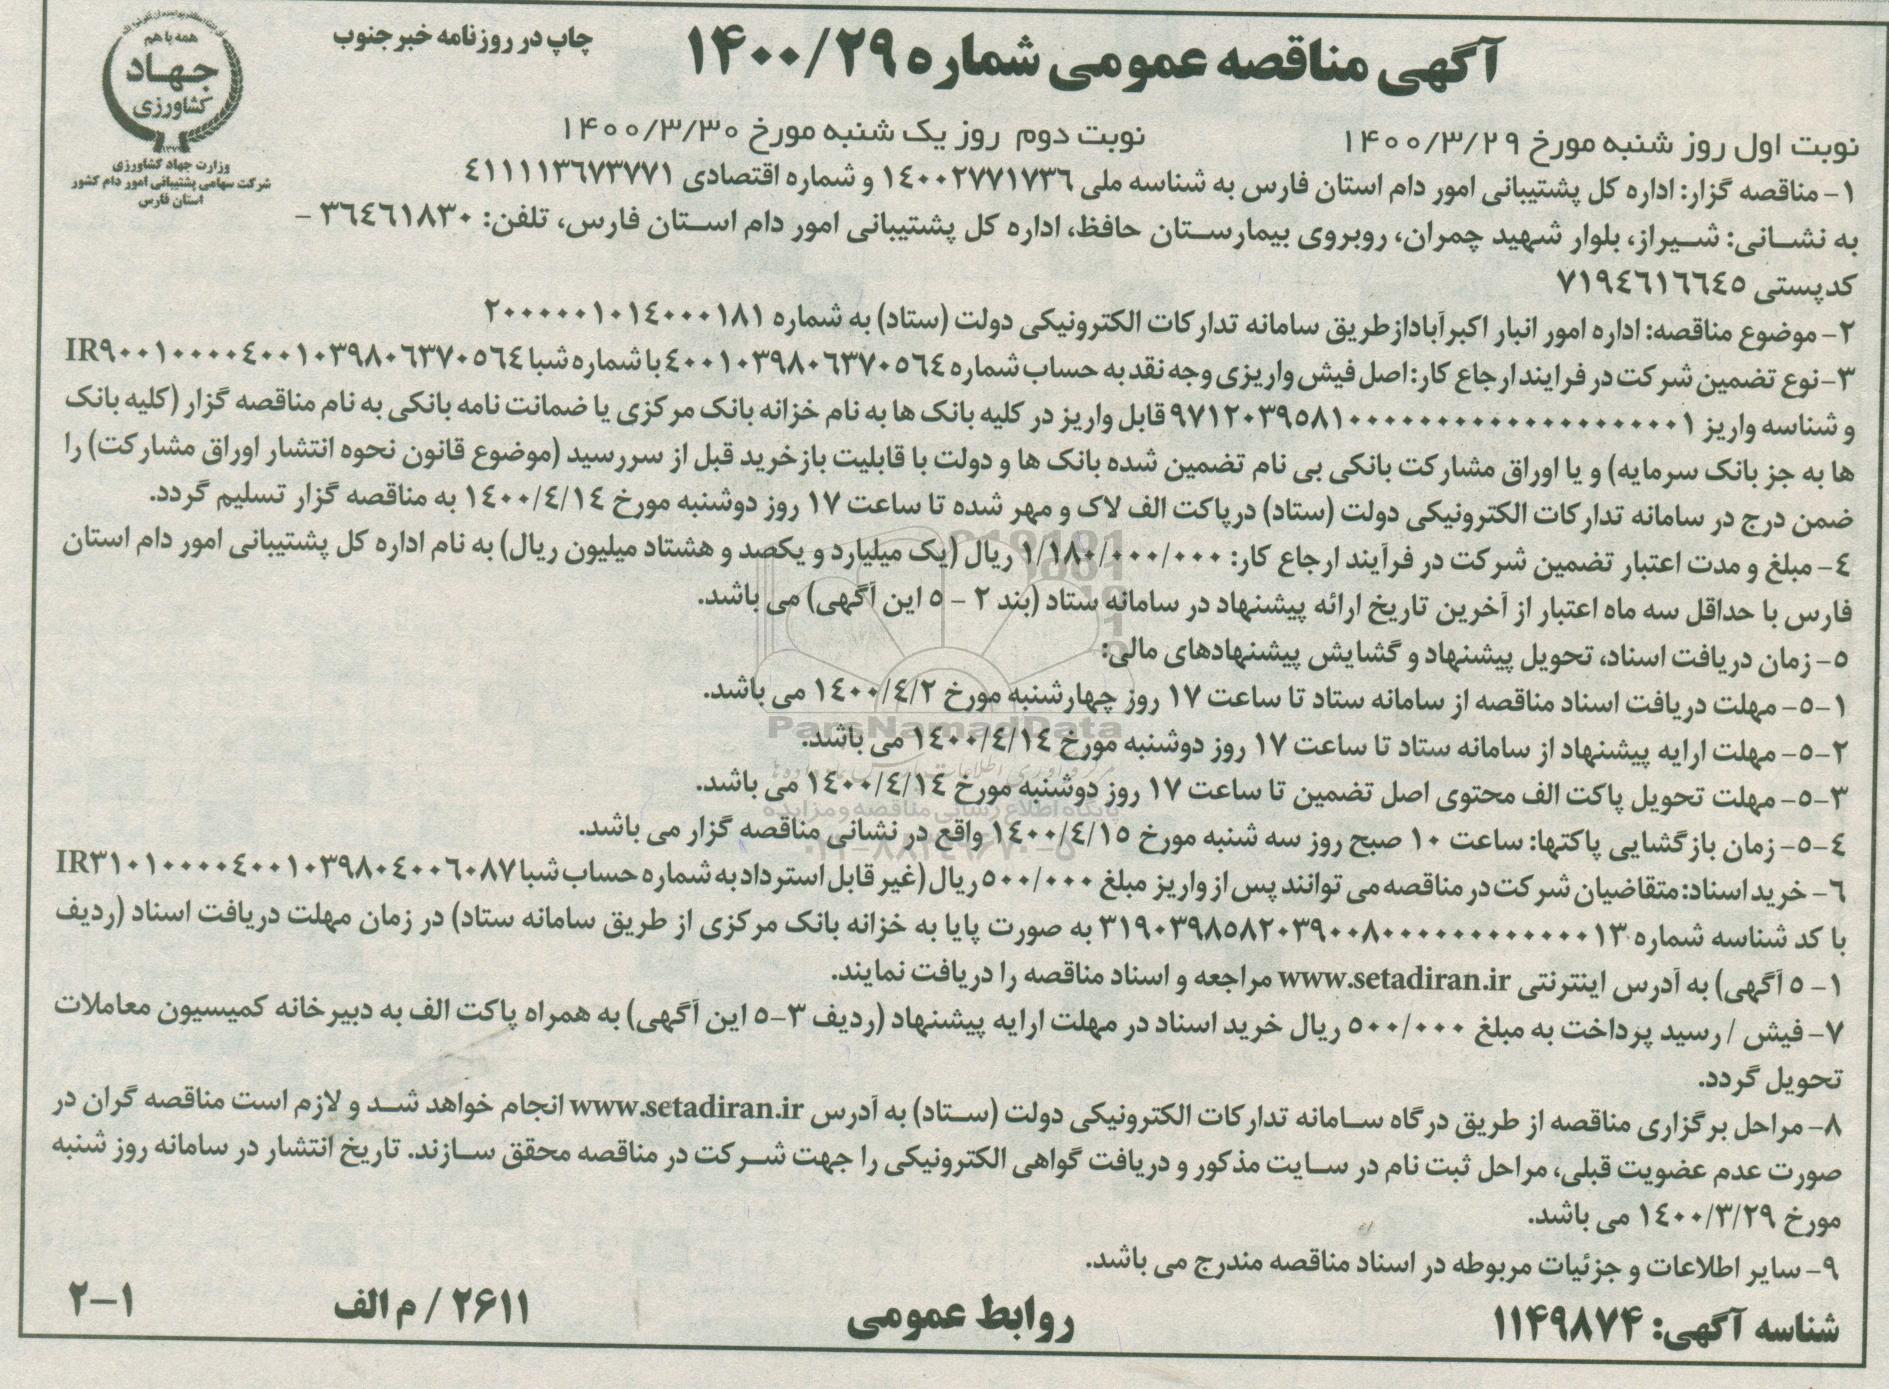 آگهی مناقصه عمومی شماره ۱۴۰۰/۲۹
چاپ در روزنامه خبر جنوب
همه با هم
جهاد
کشاورزی
وزارت جهاد کشاورزی
شرکت سهامی پشتیبانی امور دام کشور
استان فارس
نوبت اول روز شنبه مورخ ۱۴۰۰/۳/۲۹ نوبت دوم روز یک شنبه مورخ ۱۴۰۰/۳/۳۰
۱- مناقصه گزار: اداره کل پشتیبانی امور دام استان فارس به شناسه ملی ۱٤۰۰۲۷۷۱۷۳٦ و شماره اقتصادی ٤۱۱۱۱۳٦۷۳۷۷۱
به نشانی: شیراز، بلوار شهید چمران، روبروی بیمارستان حافظ، اداره کل پشتیبانی امور دام استان فارس، تلفن: ۳٦٤٦۱۸۳۰ –
کدپستی ۷۱۹٤٦۱٦٦٤٥
۲- موضوع مناقصه: اداره امور انبار اکبرآباد از طریق سامانه تدارکات الکترونیکی دولت (ستاد) به شماره ۲۰۰۰۰۰۱۰۱٤۰۰۰۱۸۱
۳- نوع تضمین شرکت در فرایند ارجاع کار: اصل فیش واریزی وجه نقد به حساب شماره ٤۰۰۱۰۳۹۸۰٦۳۷۰٥٦٤ با شماره شبا IR۹۰۰۱۰۰۰۰٤۰۰۱۰۳۹۸۰٦۳۷۰٥٦٤
و شناسه واریز قابل واریز در کلیه بانک ها به نام خزانه بانک مرکزی یا ضمانت نامه بانکی به نام مناقصه گزار (کلیه بانک
ها به جز بانک سرمایه) و یا اوراق مشارکت بانکی بی نام تضمین شده بانک ها و دولت با قابلیت بازخرید قبل از سررسید (موضوع قانون نحوه انتشار اوراق مشارکت) را
ضمن درج در سامانه تدارکات الکترونیکی دولت (ستاد) درپاکت الف لاک و مهر شده تا ساعت ۱۷ روز دوشنبه مورخ ۱٤۰۰/٤/۱٤ به مناقصه گزار تسلیم گردد.
٤- مبلغ و مدت اعتبار تضمین شرکت در فرآیند ارجاع کار: ۱/۱۸۰/۰۰۰/۰۰۰ ریال (یک میلیارد و یکصد و هشتاد میلیون ریال) به نام اداره کل پشتیبانی امور دام استان
فارس با حداقل سه ماه اعتبار از آخرین تاریخ ارائه پیشنهاد در سامانه ستاد (بند ۲ – ٥ این آگهی) می باشد.
٥- زمان دریافت اسناد، تحویل پیشنهاد و گشایش پیشنهادهای مالی:
۱-٥- مهلت دریافت اسناد مناقصه از سامانه ستاد تا ساعت ۱۷ روز چهارشنبه مورخ ۱٤۰۰/٤/۲ می باشد.
ParsNamadData
۲-٥- مهلت ارایه پیشنهاد از سامانه ستاد تا ساعت ۱۷ روز دوشنبه مورخ ۱٤۰۰/٤/۱٤ می باشد.
۳-٥- مهلت تحویل پاکت الف محتوی اصل تضمین تا ساعت ۱۷ روز دوشنبه مورخ ۱٤۰۰/٤/۱٤ می باشد.
پایگاه اطلاع رسانی مناقصه و مزایده
٤-٥- زمان بازگشایی پاکتها: ساعت ۱۰ صبح روز سه شنبه مورخ ۱٤۰۰/٤/۱٥ واقع در نشانی مناقصه گزار می باشد.
٦- خرید اسناد: متقاضیان شرکت در مناقصه می توانند پس از واریز مبلغ ٥۰۰/۰۰۰ ریال (غیر قابل استرداد به شماره حساب شبا IR۳۱۰۱۰۰۰۰٤۰۰۱۰۳۹۸۰٤۰۰٦۰۸۷
با کد شناسه شماره به صورت پایا به خزانه بانک مرکزی از طریق سامانه ستاد) در زمان مهلت دریافت اسناد (ردیف
۱- ٥ آگهی) به آدرس اینترنتی www.setadiran.ir مراجعه و اسناد مناقصه را دریافت نمایند.
۷- فیش / رسید پرداخت به مبلغ ٥۰۰/۰۰۰ ریال خرید اسناد در مهلت ارایه پیشنهاد (ردیف ۳-٥ این آگهی) به همراه پاکت الف به دبیرخانه کمیسیون معاملات
تحویل گردد.
۸- مراحل برگزاری مناقصه از طریق درگاه سامانه تدارکات الکترونیکی دولت (ستاد) به آدرس www.setadiran.ir انجام خواهد شد و لازم است مناقصه گران در
صورت عدم عضویت قبلی، مراحل ثبت نام در سایت مذکور و دریافت گواهی الکترونیکی را جهت شرکت در مناقصه محقق سازند. تاریخ انتشار در سامانه روز شنبه
مورخ ۱٤۰۰/۳/۲۹ می باشد.
۹- سایر اطلاعات و جزئیات مربوطه در اسناد مناقصه مندرج می باشد.
شناسه آگهی: ۱۱۴۹۸۷۴ روابط عمومی ۲۶۱۱ / م الف ۲-۱